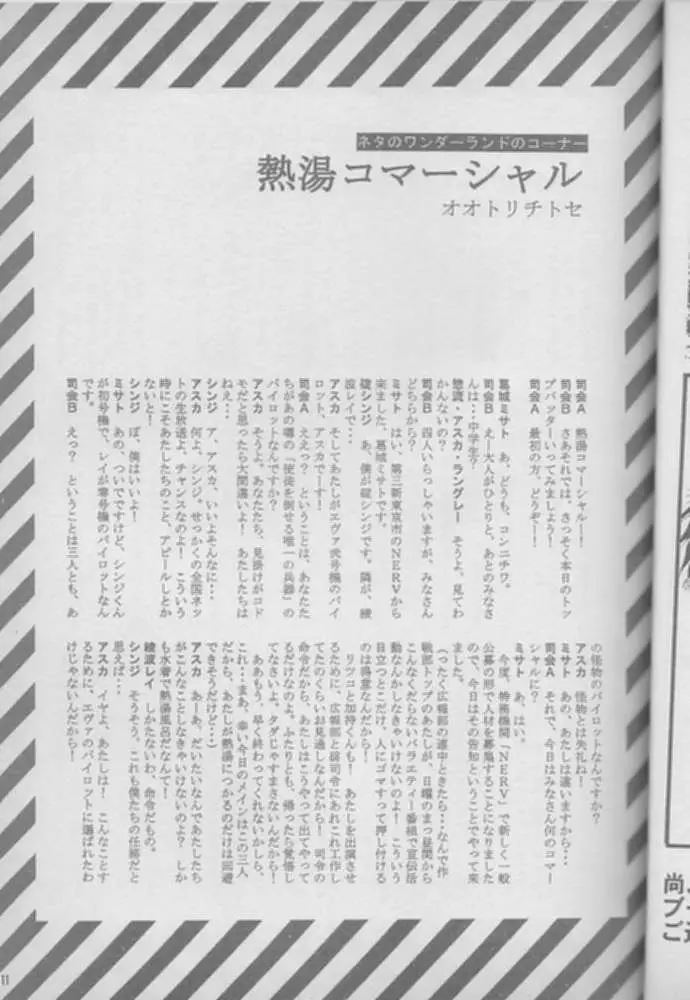 ネタのワンダーランドのコーナー
熱湯コマーシャル
オオトリチトセ
司会A　熱湯コマーシャル！！
司会B　さあそれでは、さっそく本日のトッ
プバッターいってみましょう！
司会A　最初の方、どうぞ！！
葛城ミサト　あ、どうも、コンニチワ。
司会B　えー大人がひとりと、あとのみなさ
んは…中学生？
惣流・アスカ・ラングレー　そうよ、見てわ
かんないの？
司会B　四人いらっしゃいますが、みなさん
どちらから？
ミサト　はい、第三新東京市のNERVから
来ました、葛城ミサトです。
碇シンジ　あ、僕が碇シンジです。隣が、綾
波レイで…
アスカ　そしてあたしがエヴァ弐号機のパイ
ロット、アスカでーす！
司会A　ええっ？　ということは、あなたた
ちがあの噂の「使徒を倒せる唯一の兵器」の
パイロットなんですか？
アスカ　そうよ。あなたたち、見掛けがコド
モだと思ったら大間違いよ！　あたしたちは
ねえ…
シンジ　ア、アスカ、いいよそんなに…
アスカ　何よ、シンジ。せっかくの全国ネッ
トの生放送よ、チャンスなのよ！　こういう
時にこそあたしたちのこと、アピールしとか
ないと！
シンジ　ぼ、僕はいいよ！
ミサト　あの、ついでですけど、シンジくん
が初号機で、レイが零号機のパイロットなん
です。
司会B　えっ？　ということは三人とも、あ
の怪物のパイロットなんですか？
アスカ　怪物とは失礼ね！
ミサト　あの、あたしは違いますから…
司会A　それで、今日はみなさん何のコマー
シャルに？
ミサト　あ、はい。
　今度、特務機関「NERV」で新しく一般
公募の形で人材を募集することになりました
ので、今日はその告知ということでやって来
ました。
（ったく広報部の連中ときたら…なんで作
戦部トップのあたしが、日曜のまっ昼間から
こんなくだらないバラエティー番組で宣伝活
動なんかしなきゃいけないのよ！　こういう
目立つとこだけ、人にゴマすって押し付ける
のは得意なんだから！
　リツコと加持くんも！　あたしを出演させ
るために、広報部と碇司令にあれこれ工作し
てたのくらいお見通しなんだから！　司令の
命令だから、あたしはこうやって出てやって
るだけなのよ。ふたりとも、帰ったら覚悟し
てなさいよ。タダじゃすまさないんだから！
　ああもう、早く終わってくれないかしら、
これ…まあ、幸い今日のメインはこの三人
だから、あたしが熱湯につかるのだけは回避
できそうだけど…）
アスカ　あーあ、だいたいなんであたしたち
がこんなことしなきゃいけないのよ？　しか
も水着で熱湯風呂だなんて！
綾波レイ　しかたないわ、命令だもの。
シンジ　そうそう。これも僕たちの任務だと
思えば…
アスカ　イヤよ、あたしは！　こんなことす
るために、エヴァのパイロットに選ばれたわ
けじゃないんだから！
11
尚、
プ
ご